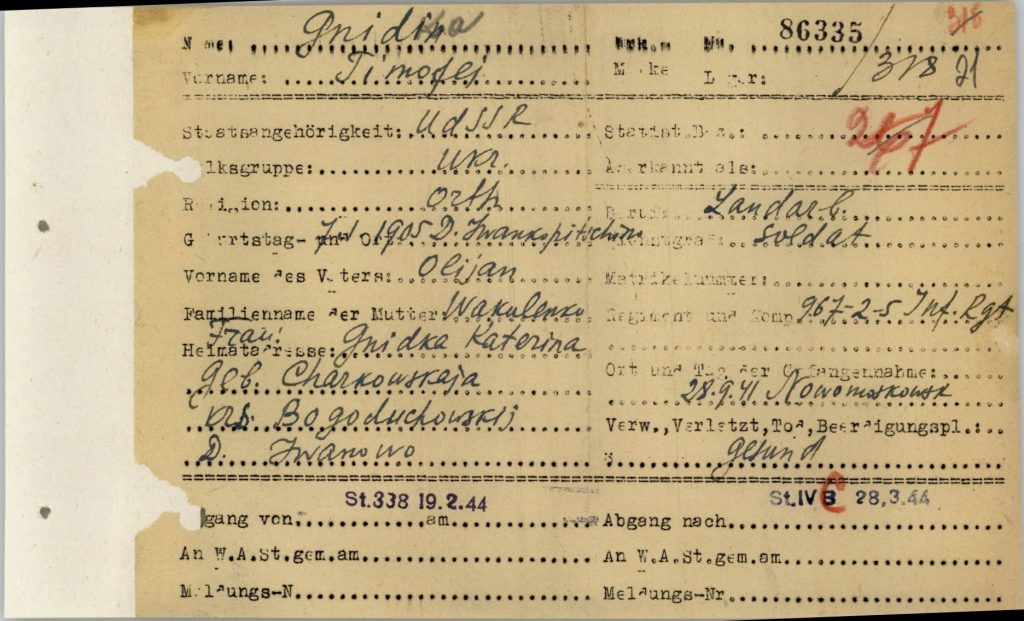 Name: Gnidka 86335 318
Vorname: Timofej Marke Lager: /318 21
Staatsangehörigkeit: UdSSR Statist.Bez.:
Volksgruppe: Ukr. Anerkannt als:
Religion: Orth. Beruf: Landarb.
Geburtstag- und Ort 1905 D. Iwankopitschino Soldat
Vorname des Vaters: Olijan Matrikelnummer:
Familienname der Mutter: Wakulenko Regiment und Komp. 967-2-5 Inf. Rgt
Frau:
Heimatadresse: Gnidka Katerina
geb. Charkowskaja Ort und Tag der Gefangennahme:
28.9.41 Nowomoskowsk
Bogoduchowskij Verw.,Verletzt,Tod,Beerdigungspl.:
D. Iwanowo gesund
St.338 19.2.44 St.IV B C 28.3.44
gang von am Abgang nach
An W.A.St.gem.am An W.A.St.gem.am
Meldungs-N Meldungs-Nr